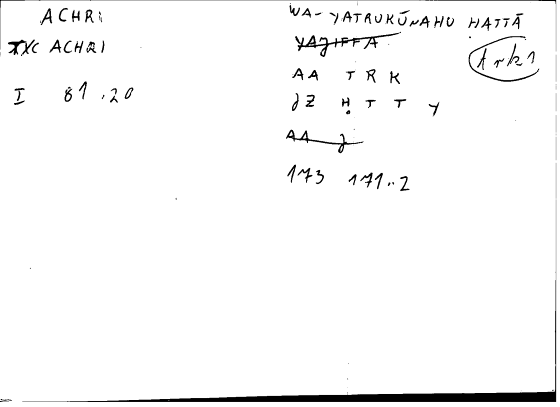 ACHRI
XC ACHRI
I 81.20
WA-YATRUKŪNAHU ḤATTĀ
YAJIFFA
Ark 1
AA TRK
JZ Ḥ T T Y
AA J
173 171..2